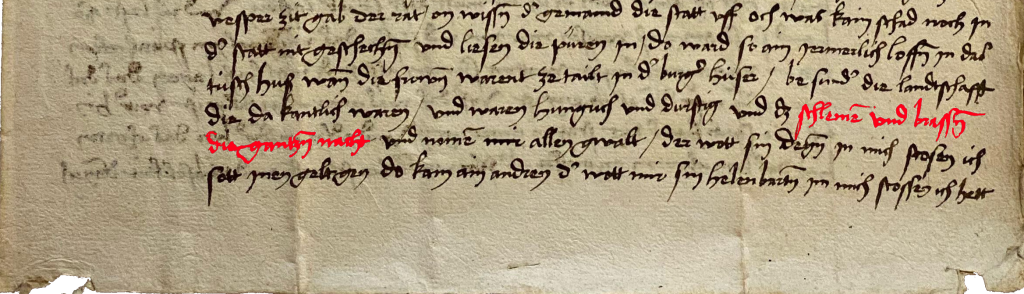 vesper zit gab der rat, on wissn d' gemaind die statt uff och was kain schad noch in
d' statt nit geschechn und liesen die puren in, do ward so ain jemerlich loffn in das
tusch hus wan die fruwn warent ze tailt in d' burg' hüser, be sund' die landtschafft
die da kantlich waren, und waren hungrich und durstig und dz schlemen und brassn
die gantzn nacht und nomen mir allen gwalt, der wott sin degn in mich stosen ich
sott inen gelt gen do kam ain andren d' wott mir sin helenbartn in mich stossen ich hett